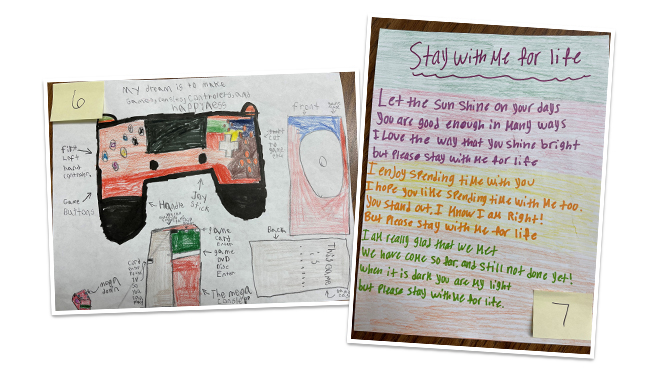 6
My dream is to make
Gaming consoles, Controlers, and
happiness
front
Left
hand
Game
Buttons
Joy
Stick
Handle
game
card
Enter
game
DVD
Disc
Enter
Back
card
The mega
mega
down
Stay with Me for life
Let the Sun Shine on your days
You are good enough in Many ways
I Love the way that you Shine bright
but Please Stay with Me for life
I enjoy Spending time with you
I hope you like Spending time with Me too.
You stand out, I Know I am Right!
But Please Stay with Me for life
I am really glad that we Met
We have come So far, and still not done yet!
When it is dark you are My light
but Please Stay with Me for life.
7